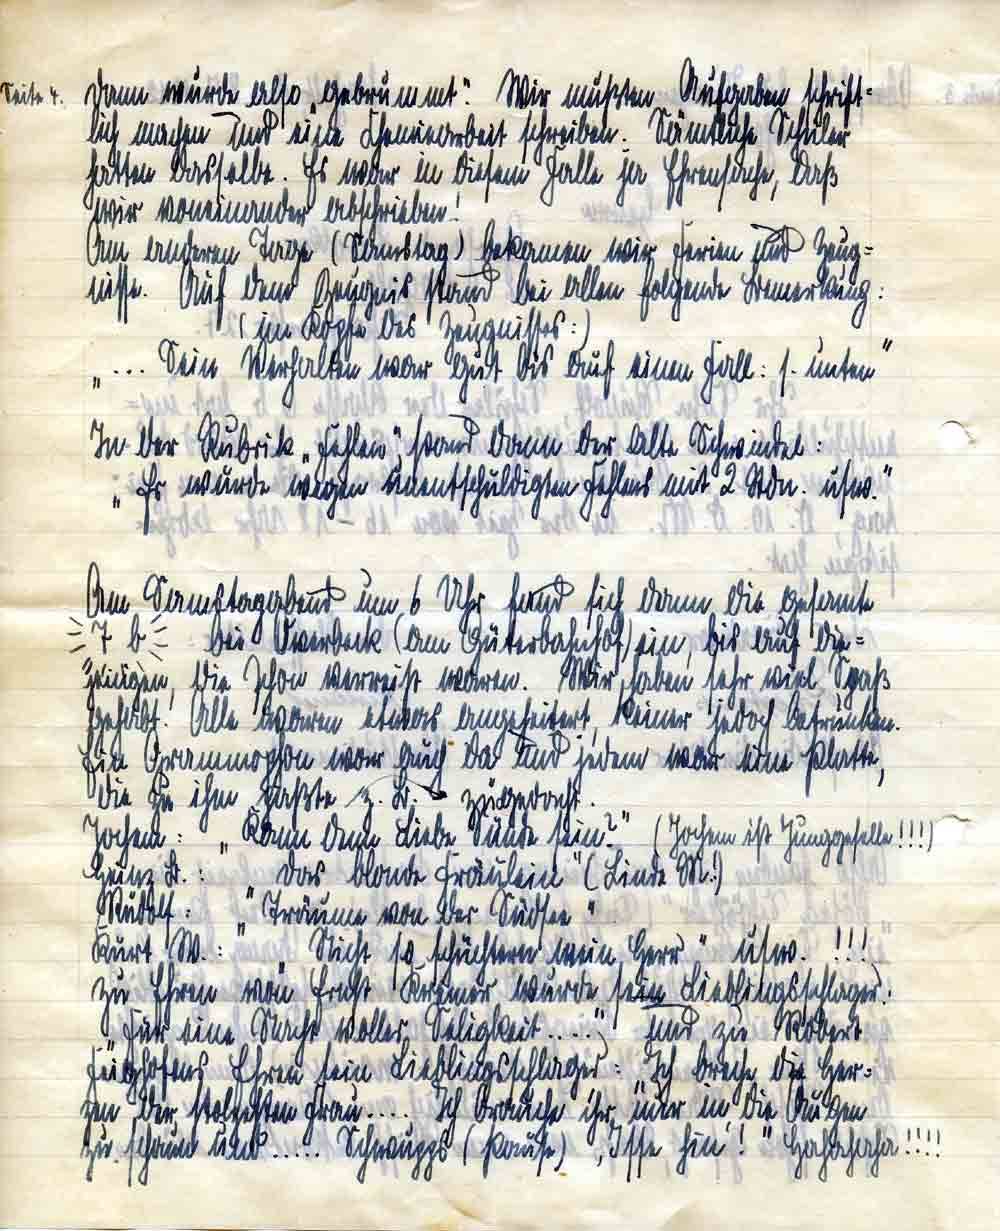 Seite 4.
Dann wurde also „gebrummt“. Wir mußten Aufgaben schrift=
lich machen und eine Chemiearbeit schreiben. Sämtliche Schüler
hatten dasselbe. Es war in diesem Falle ja Ehrensache, daß
wir voneinander abschrieben!
Am anderen Tage (Samstag) bekamen wir Ferien und Zeug=
nisse. Auf dem Zeugnis stand bei allen folgende Bemerkung:
(im Kopfe des Zeugnisses:)
„... Sein Verhalten war gut bis auf einen Fall: s. unten“
In der Rubrik „Fehlen“, stand dann der alte Schwindel:
„Es wurde wegen unentschuldigten Fehlens mit 2 Stdn. usw.“
Am Samstagabend um 6 Uhr fand sich dann die gesamte
7 b bei Overbeck (am Güterbahnhof) ein, bis auf die=
jenigen, die schon verreist waren. Wir haben sehr viel Spaß
gehabt. Alle waren etwas angeheitert, keiner jedoch betrunken.
Ein Grammophon war auch da und jedem war eine Platte,
die zu ihm paßte z. B. zugedacht.
Jochem: „Kann denn Liebe Sünde sein?“ (Jochem ist Junggeselle!!!)
Heinz B.: Das blonde Fräulein“ (Linde M.!)
Rudolf: „Träume von der Südsee“
Kurt W.: „Nicht so schüchtern mein Herr“ usw. !!!
Zu Ehren von Erich Kremer wurde sein Lieblingsschlager:
„Für eine Nacht voller Seligkeit.....“, und zu Robert
Ehren sein Lieblingsschlager: „Ich breche die Her=
zen der stolzesten Frau.... Ich brauche ihr, nur in die Augen
zu schaun und..... Schwupps (Pause) , Isse hin! “ Hahahaha!!!!